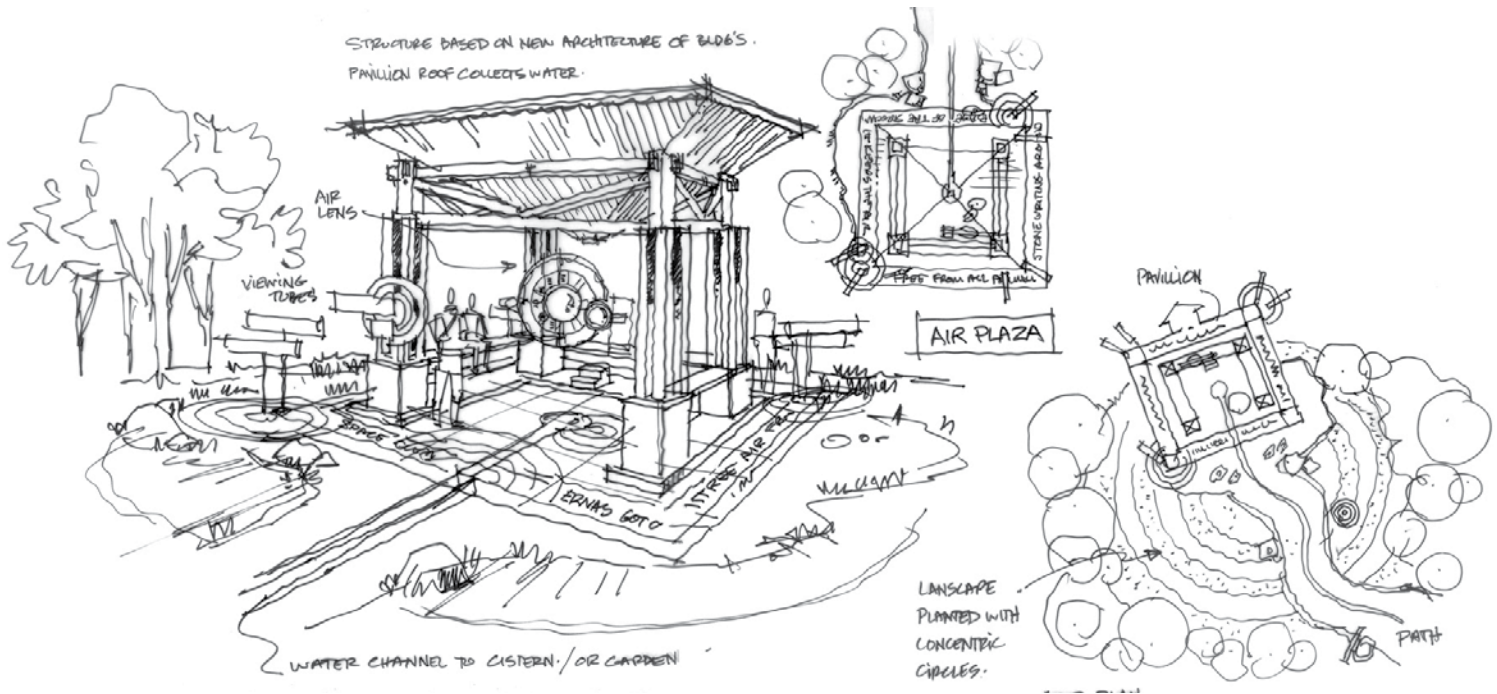 STRUCTURE BASED ON NEW ARCHITECTURE OF BLDG'S.
PAVILLION ROOF COLLECTS WATER.
AIR
LENS
VIEWING
TUBES
SPACE
WATER CHANNEL TO CISTERN / OR GARDEN
STONE WRITING AROUND
FREE FROM ALL
AIR PLAZA
PAVILLION
LANSCAPE
PLANTED WITH
CONCENTRIC
CIRCLES.
PATH